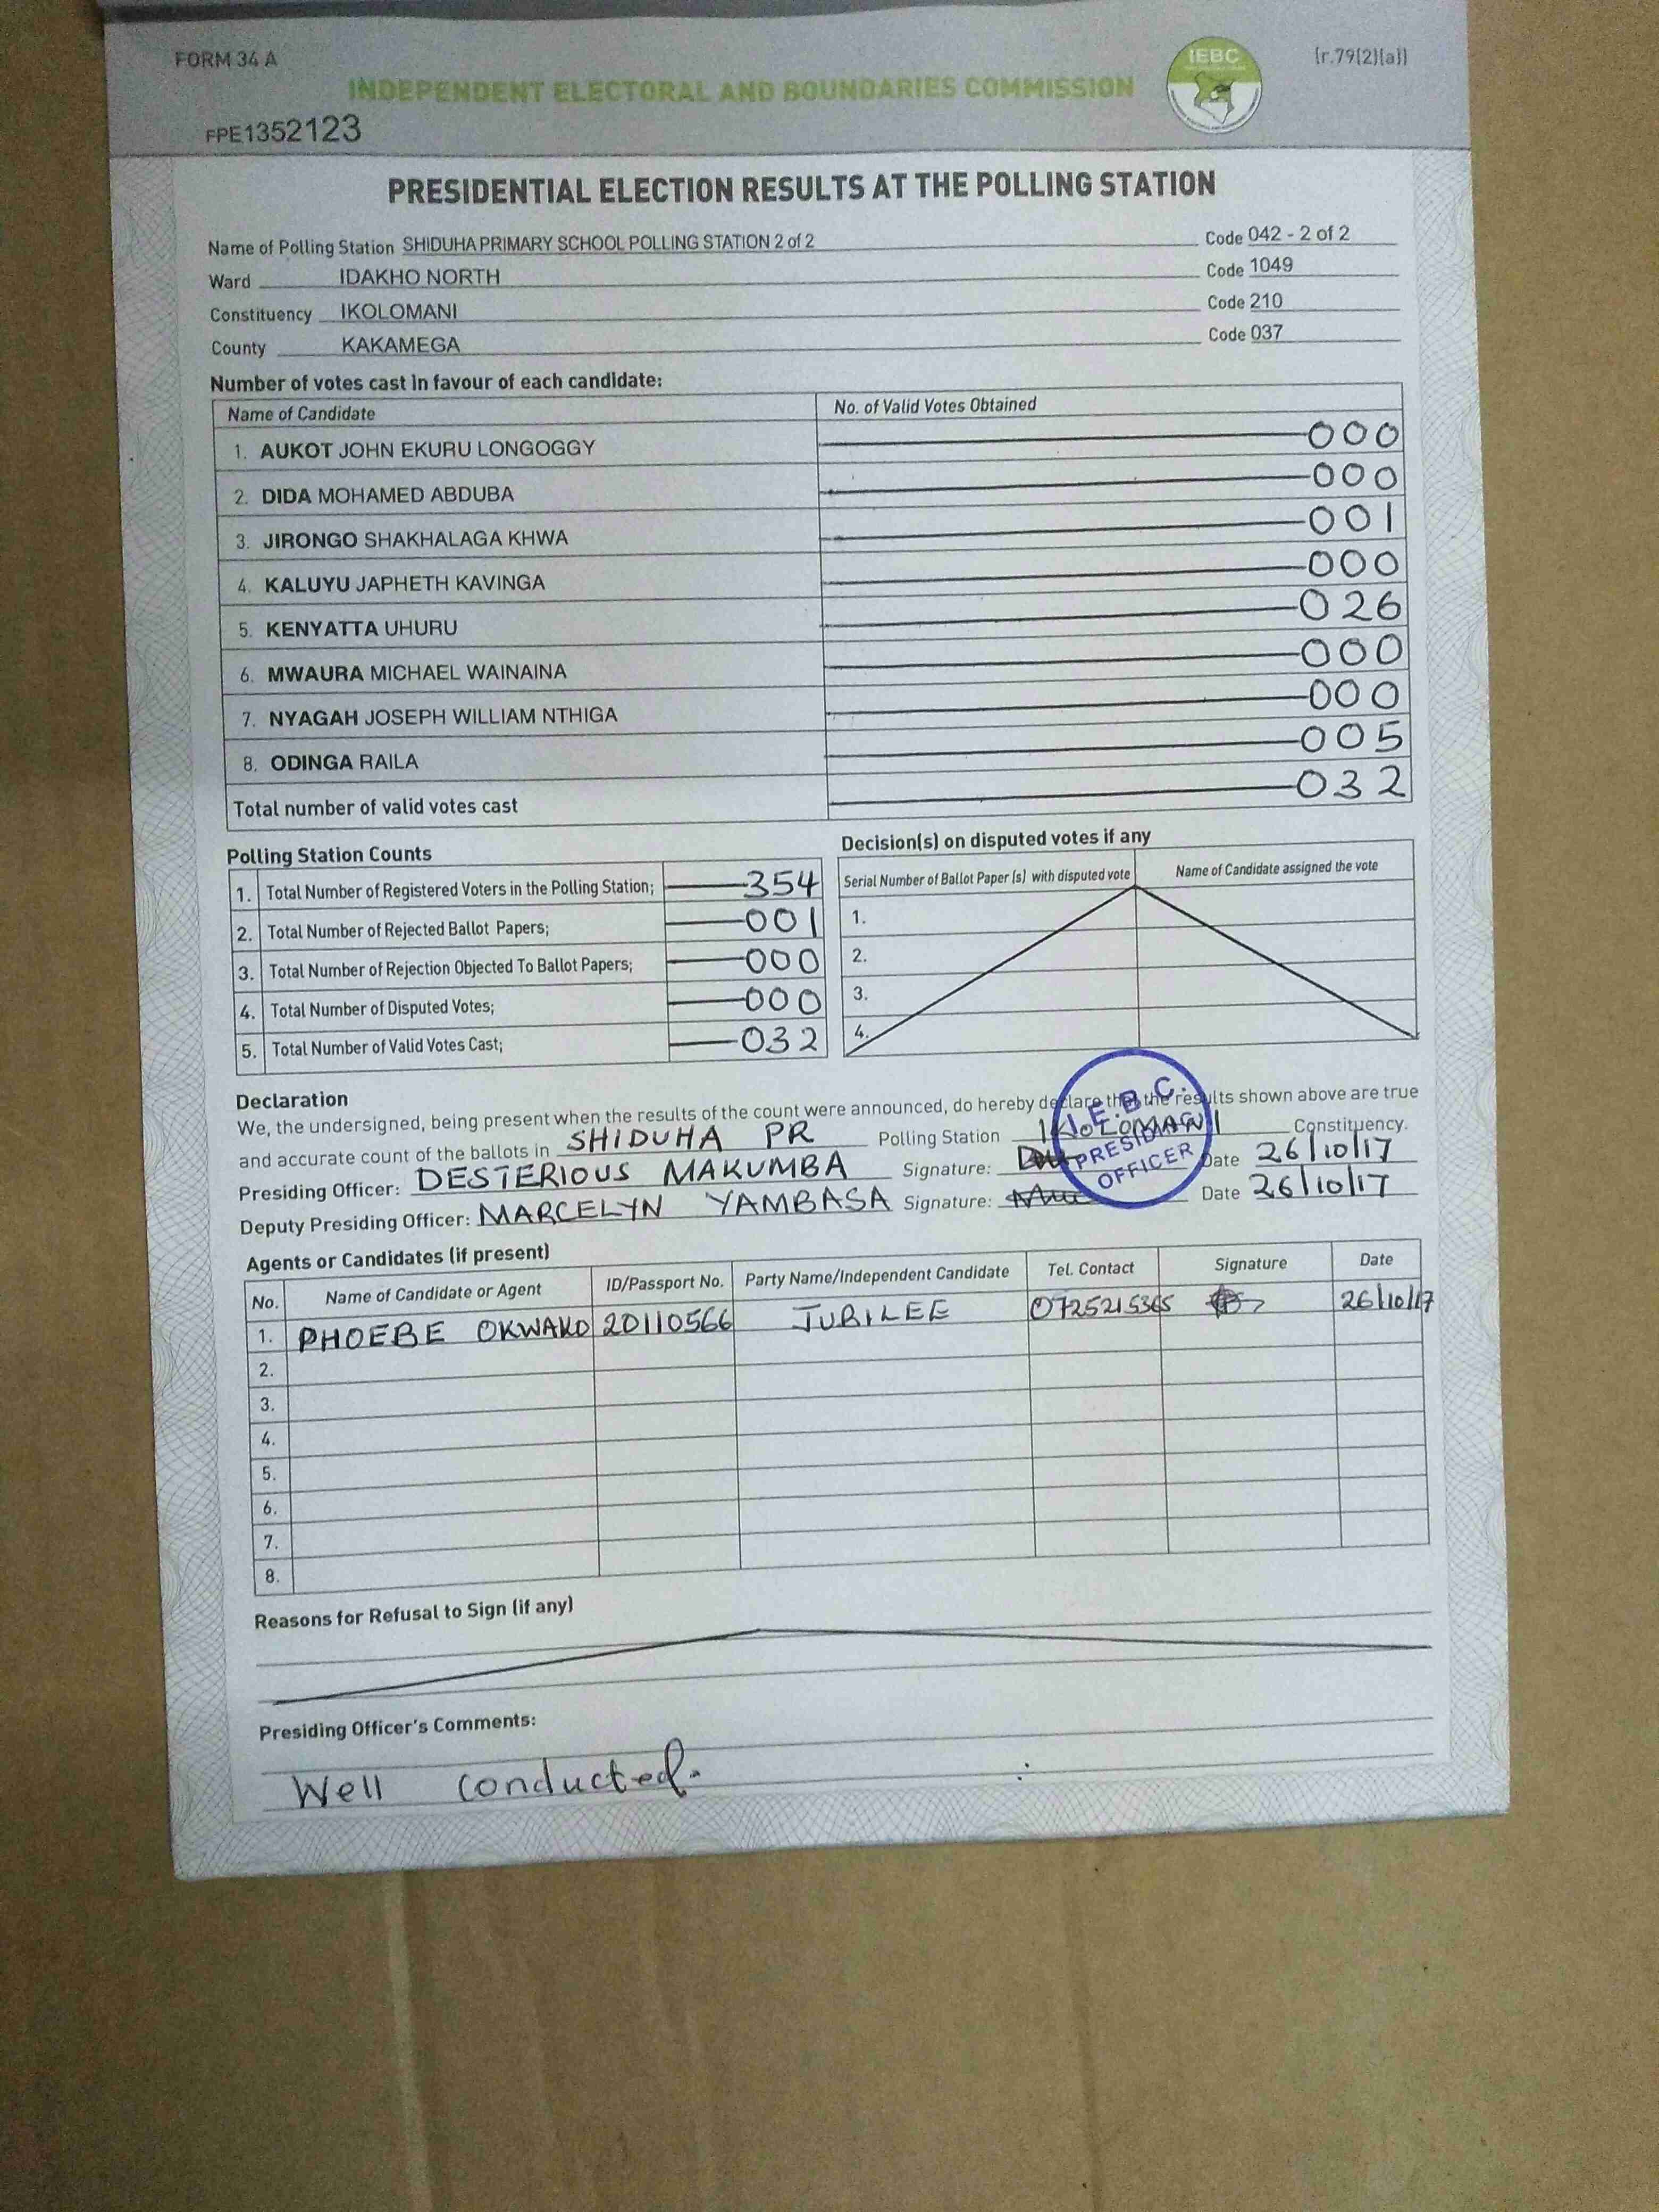 FORM 34 A
IEBC
[r.79(2)(a)]
INDEPENDENT ELECTORAL AND BOUNDARIES COMMISSION
FPE1352123
PRESIDENTIAL ELECTION RESULTS AT THE POLLING STATION
Name of Polling Station SHIDUHA PRIMARY SCHOOL POLLING STATION 2 of 2 Code 042 - 2 of 2
Ward IDAKHO NORTH Code 1049
Constituency IKOLOMANI Code 210
County KAKAMEGA Code 037
Number of votes cast in favour of each candidate:
Name of Candidate No. of Valid Votes Obtained
1. AUKOT JOHN EKURU LONGOGGY 000
2. DIDA MOHAMED ABDUBA 000
3. JIRONGO SHAKHALAGA KHWA 001
4. KALUYU JAPHETH KAVINGA 000
5. KENYATTA UHURU 026
6. MWAURA MICHAEL WAINAINA 000
7. NYAGAH JOSEPH WILLIAM NTHIGA 000
8. ODINGA RAILA 005
Total number of valid votes cast 032
Polling Station Counts
1. Total Number of Registered Voters in the Polling Station; 354
2. Total Number of Rejected Ballot Papers; 001
3. Total Number of Rejection Objected To Ballot Papers; 000
4. Total Number of Disputed Votes; 000
5. Total Number of Valid Votes Cast; 032
Decision(s) on disputed votes if any
Serial Number of Ballot Paper (s) with disputed vote Name of Candidate assigned the vote
1.
2.
3.
4.
Declaration
We, the undersigned, being present when the results of the count were announced, do hereby declare that the results shown above are true
and accurate count of the ballots in SHIDUHA PR Polling Station IKOLOMANI Constituency.
Presiding Officer: DESTERIOUS MAKUMBA Signature: Date 26/10/17
Deputy Presiding Officer: MARCELYN YAMBASA Signature: Date 26/10/17
I.E.B.C.
PRESIDING
OFFICER
Agents or Candidates (if present)
No. Name of Candidate or Agent ID/Passport No. Party Name/Independent Candidate Tel. Contact Signature Date
1. PHOEBE OKWAKO 20110566 JUBILEE 0725215365 26/10/17
2.
3.
4.
5.
6.
7.
8.
Reasons for Refusal to Sign (if any)
Presiding Officer's Comments:
Well conducted.